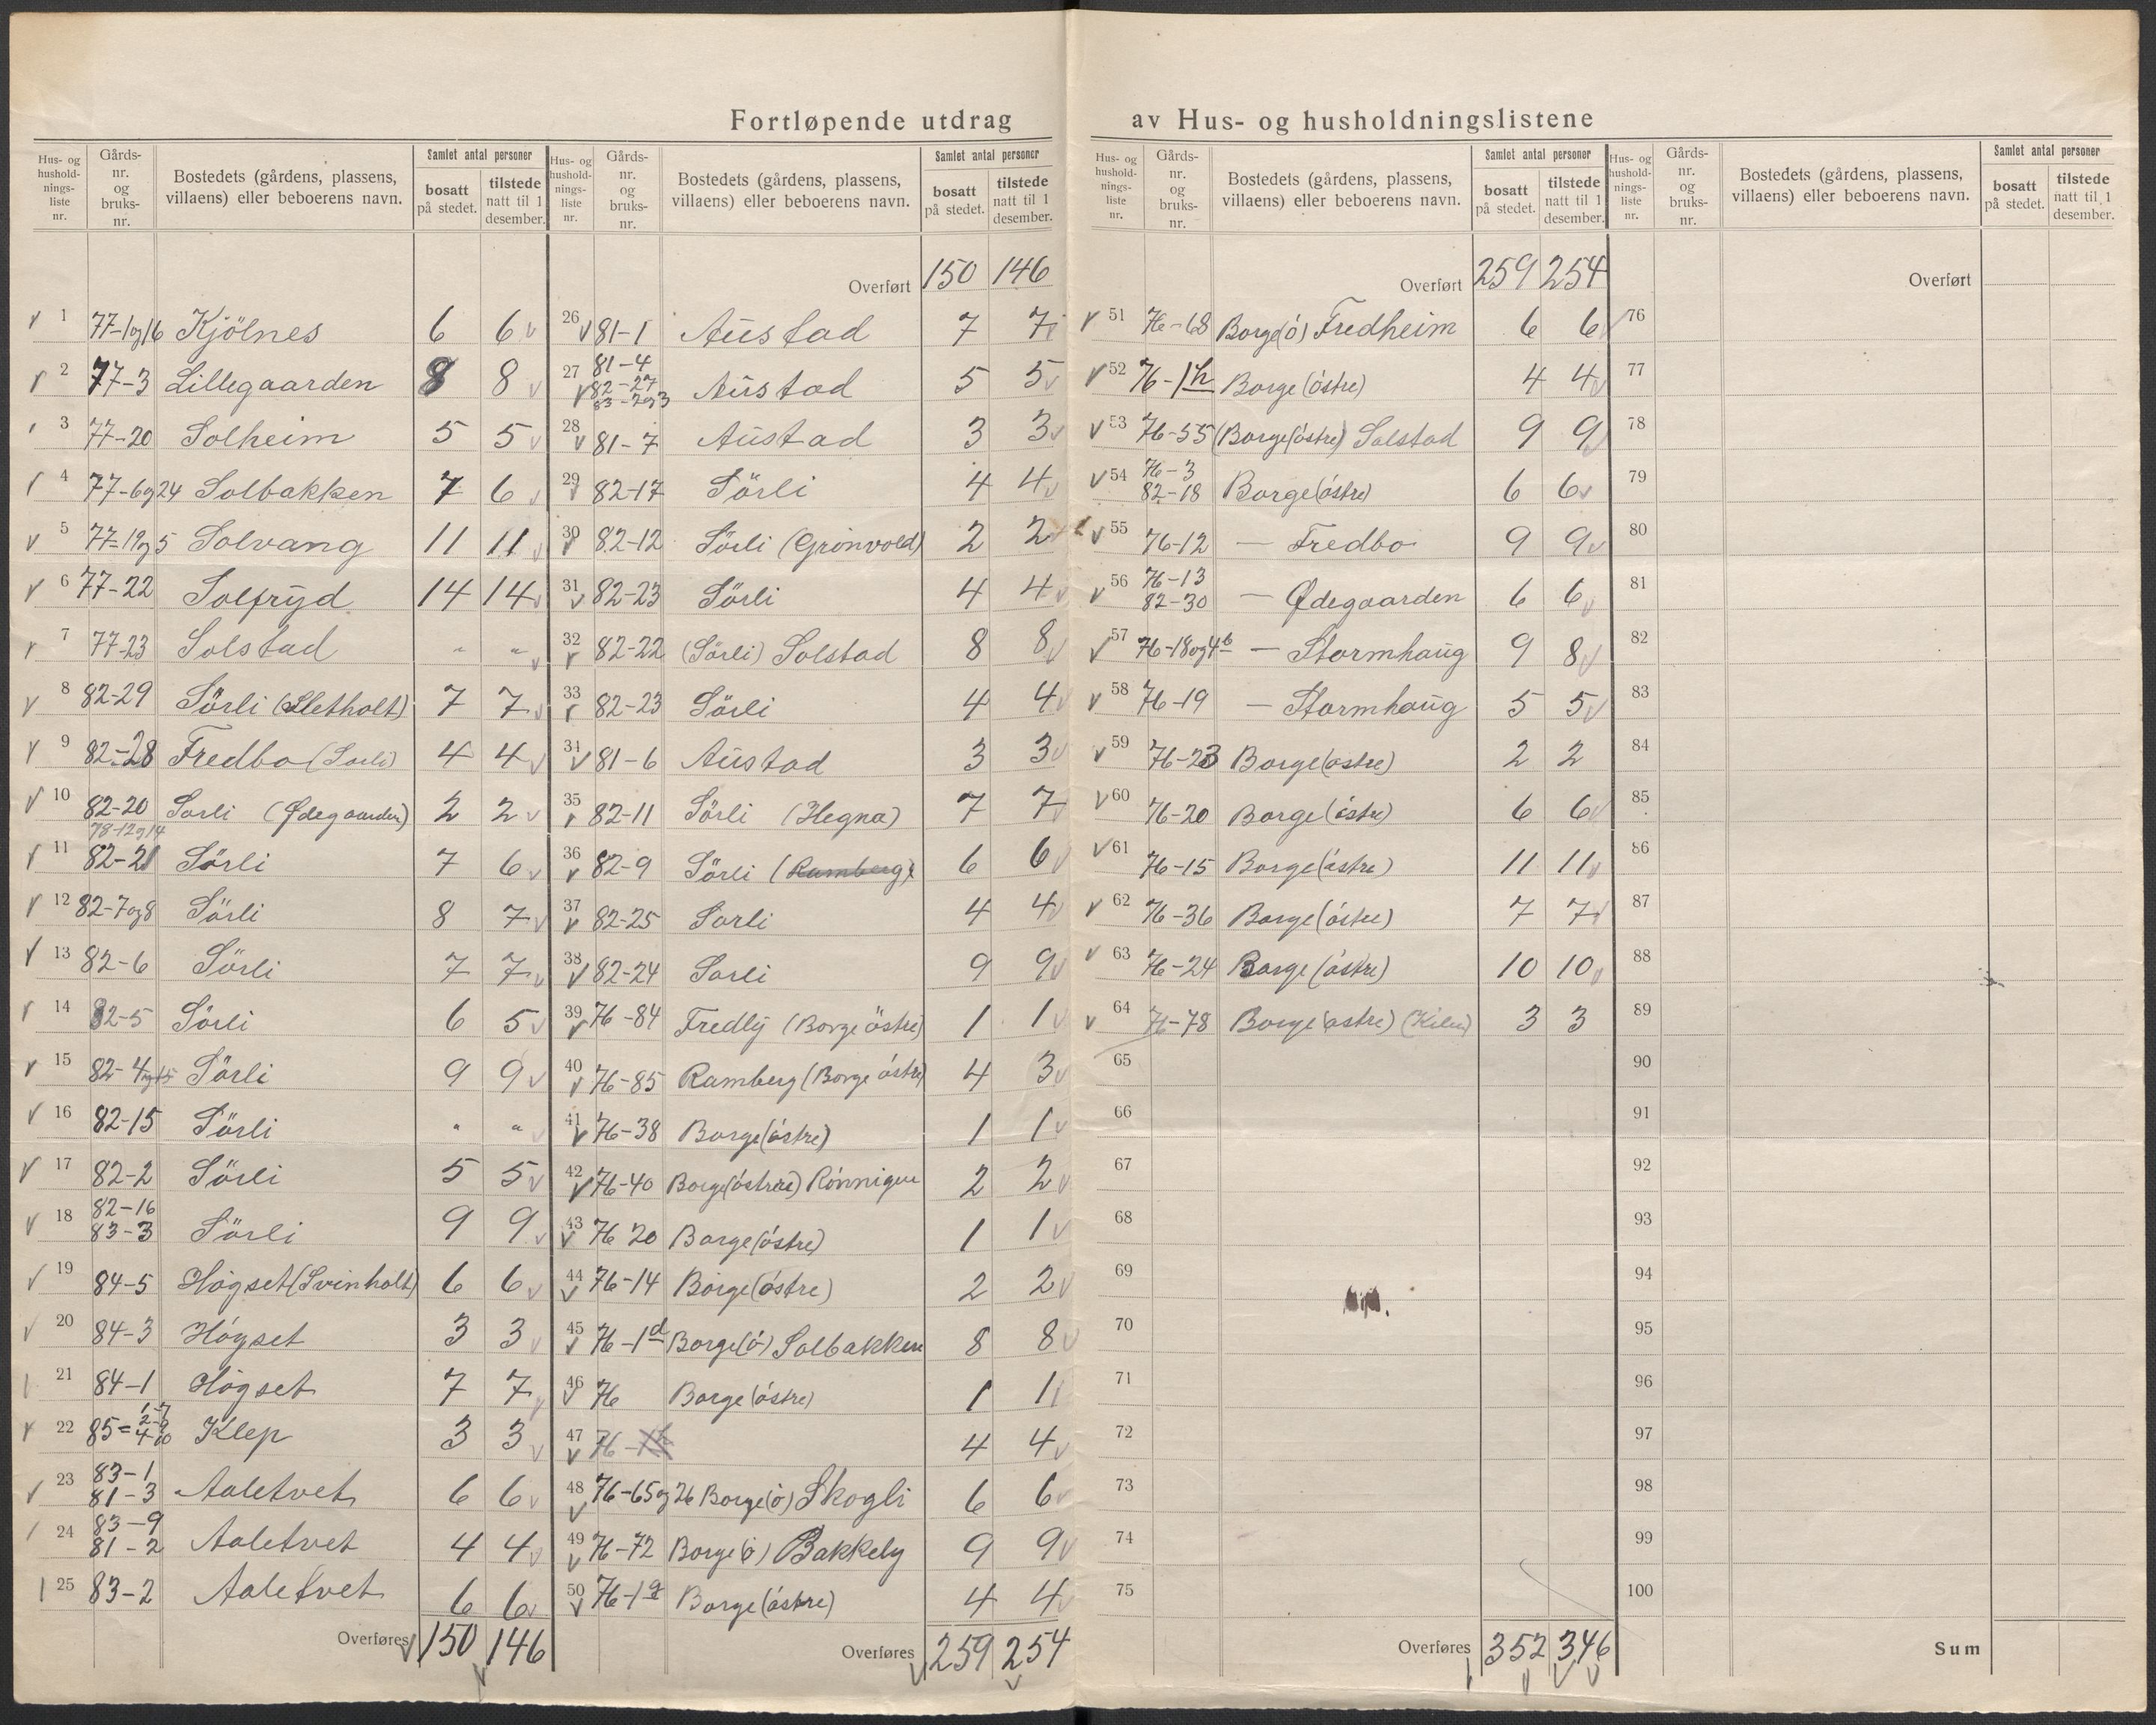 Fortløpende utdrag av Hus- og husholdningslistene
Hus- og husholdnings- liste nr. Gårds- nr. og bruks- nr. Bostedets (gårdens, plassens, villaens) eller beboerens navn. Samlet antal personer bosatt på stedet. tilstede natt til 1 desember.
1 77-1og16 Kjölnes 6 6
2 77-3 Lillegaarden 8 8
3 77-20 Solheim 5 5
4 77-6og24 Solbakken 7 6
5 77-19og5 Solvang 11 11
6 77-22 Solfryd 14 14
7 77-23 Solstad " "
8 82-29 Sörli (Sletholt) 7 7
9 82-28 Fredbo (Sorli) 4 4
10 82-20 Sorli (Ødegaarden) 2 2
78-12og14
11 82-21 Sörli 7 6
12 82-7og8 Sörli 8 7
13 82-6 Sörli 7 7
14 82-5 Sörli 6 5
15 82-4og15 Sörli 9 9
16 82-15 Sörli " "
17 82-2 Sörli 5 5
18 82-16 83-3 Sörli 9 9
19 84-5 Högset (Svinholt) 6 6
20 84-3 Högset 3 3
21 84-1 Högset 7 7
22 85= Klep 3 3
23 83-1 81-3 Aaletvet 6 6
24 83-9 81-2 Aaletvet 4 4
25 83-2 Aaletvet 6 6
Overføres 150 146
Hus- og husholdnings- liste nr. Gårds- nr. og bruks- nr. Bostedets (gårdens, plassens, villaens) eller beboerens navn. Samlet antal personer bosatt på stedet. tilstede natt til 1 desember.
Overført 150 146
26 81-1 Austad 7 7
27 81-4 82-27 83-2og3 Austad 5 5
28 81-7 Austad 3 3
29 82-17 Sörli 4 4
30 82-12 Sörli (Grönvold) 2 2
31 82-23 Sörli 4 4
32 82-22 (Sörli) Solstad 8 8
33 82-23 Sörli 4 4
34 81-6 Austad 3 3
35 82-11 Sörli (Hegna) 7 7
36 82-9 Sörli (Ramberg) 6 6
37 82-25 Sorli 4 4
38 82-24 Sorli 9 9
39 76-84 Fredly (Borge östre) 1 1
40 76-85 Ramberg (Borge östre) 4 3
41 76-38 Borge (östre) 1 1
42 76-40 Borge (östre) Rönnigen 2 2
43 76 20 Borge (östre) 1 1
44 76-14 Borge (östre) 2 2
45 76-1d Borge (ö) Solbakken 8 8
46 76 Borge (östre) 1 1
47 76-1h 4 4
48 76-65og26 Borge (ö) Skogli 6 6
49 76-72 Borge (ö) Bakkely 9 9
50 76-1g Borge (östre) 4 4
Overføres 259 254
Hus- og husholdnings- liste nr. Gårds- nr. og bruks- nr. Bostedets (gårdens, plassens, villaens) eller beboerens navn. Samlet antal personer bosatt på stedet. tilstede natt til 1 desember.
Overført 259 254
51 76-68 Borge (ö) Fredheim 6 6
52 76-1h Borge (östre) 4 4
53 76-55 (Borge (östre) Solstad 9 9
54 76-3 82-18 Borge (östre) 6 6
55 76-12 — Fredbo 9 9
56 76-13 82-30 — Ødegaarden 6 6
57 76-18og46 — Stormhaug 9 8
58 76-19 — Stormhaug 5 5
59 76-23 Borge (ostre) 2 2
60 76-20 Borge (östre) 6 6
61 76-15 Borge (östre) 11 11
62 76-36 Borge (östre) 7 7
63 76-24 Borge (östre) 10 10
64 76-78 Borge (ostre) (Kilen) 3 3
65
66
67
68
69
70
71
72
73
74
75
Overføres 352 346
Hus- og husholdnings- liste nr. Gårds- nr. og bruks- nr. Bostedets (gårdens, plassens, villaens) eller beboerens navn. Samlet antal personer bosatt på stedet. tilstede natt til 1 desember.
Overført
76
77
78
79
80
81
82
83
84
85
86
87
88
89
90
91
92
93
94
95
96
97
98
99
100
Sum